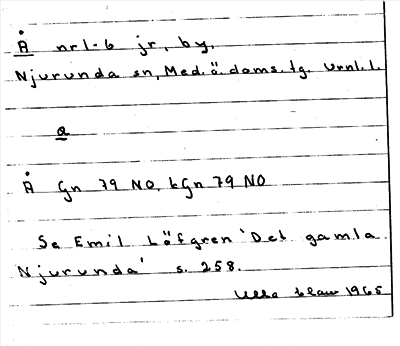 Å nr 1-6 jr, by,
Njurunda sn, Med.ö. doms. tg. Vrnl. l.
a
Å Gn 79 NO, kGn 79 NO
Se Emil Löfgren 'Det gamla
Njurunda' s. 258.
1965